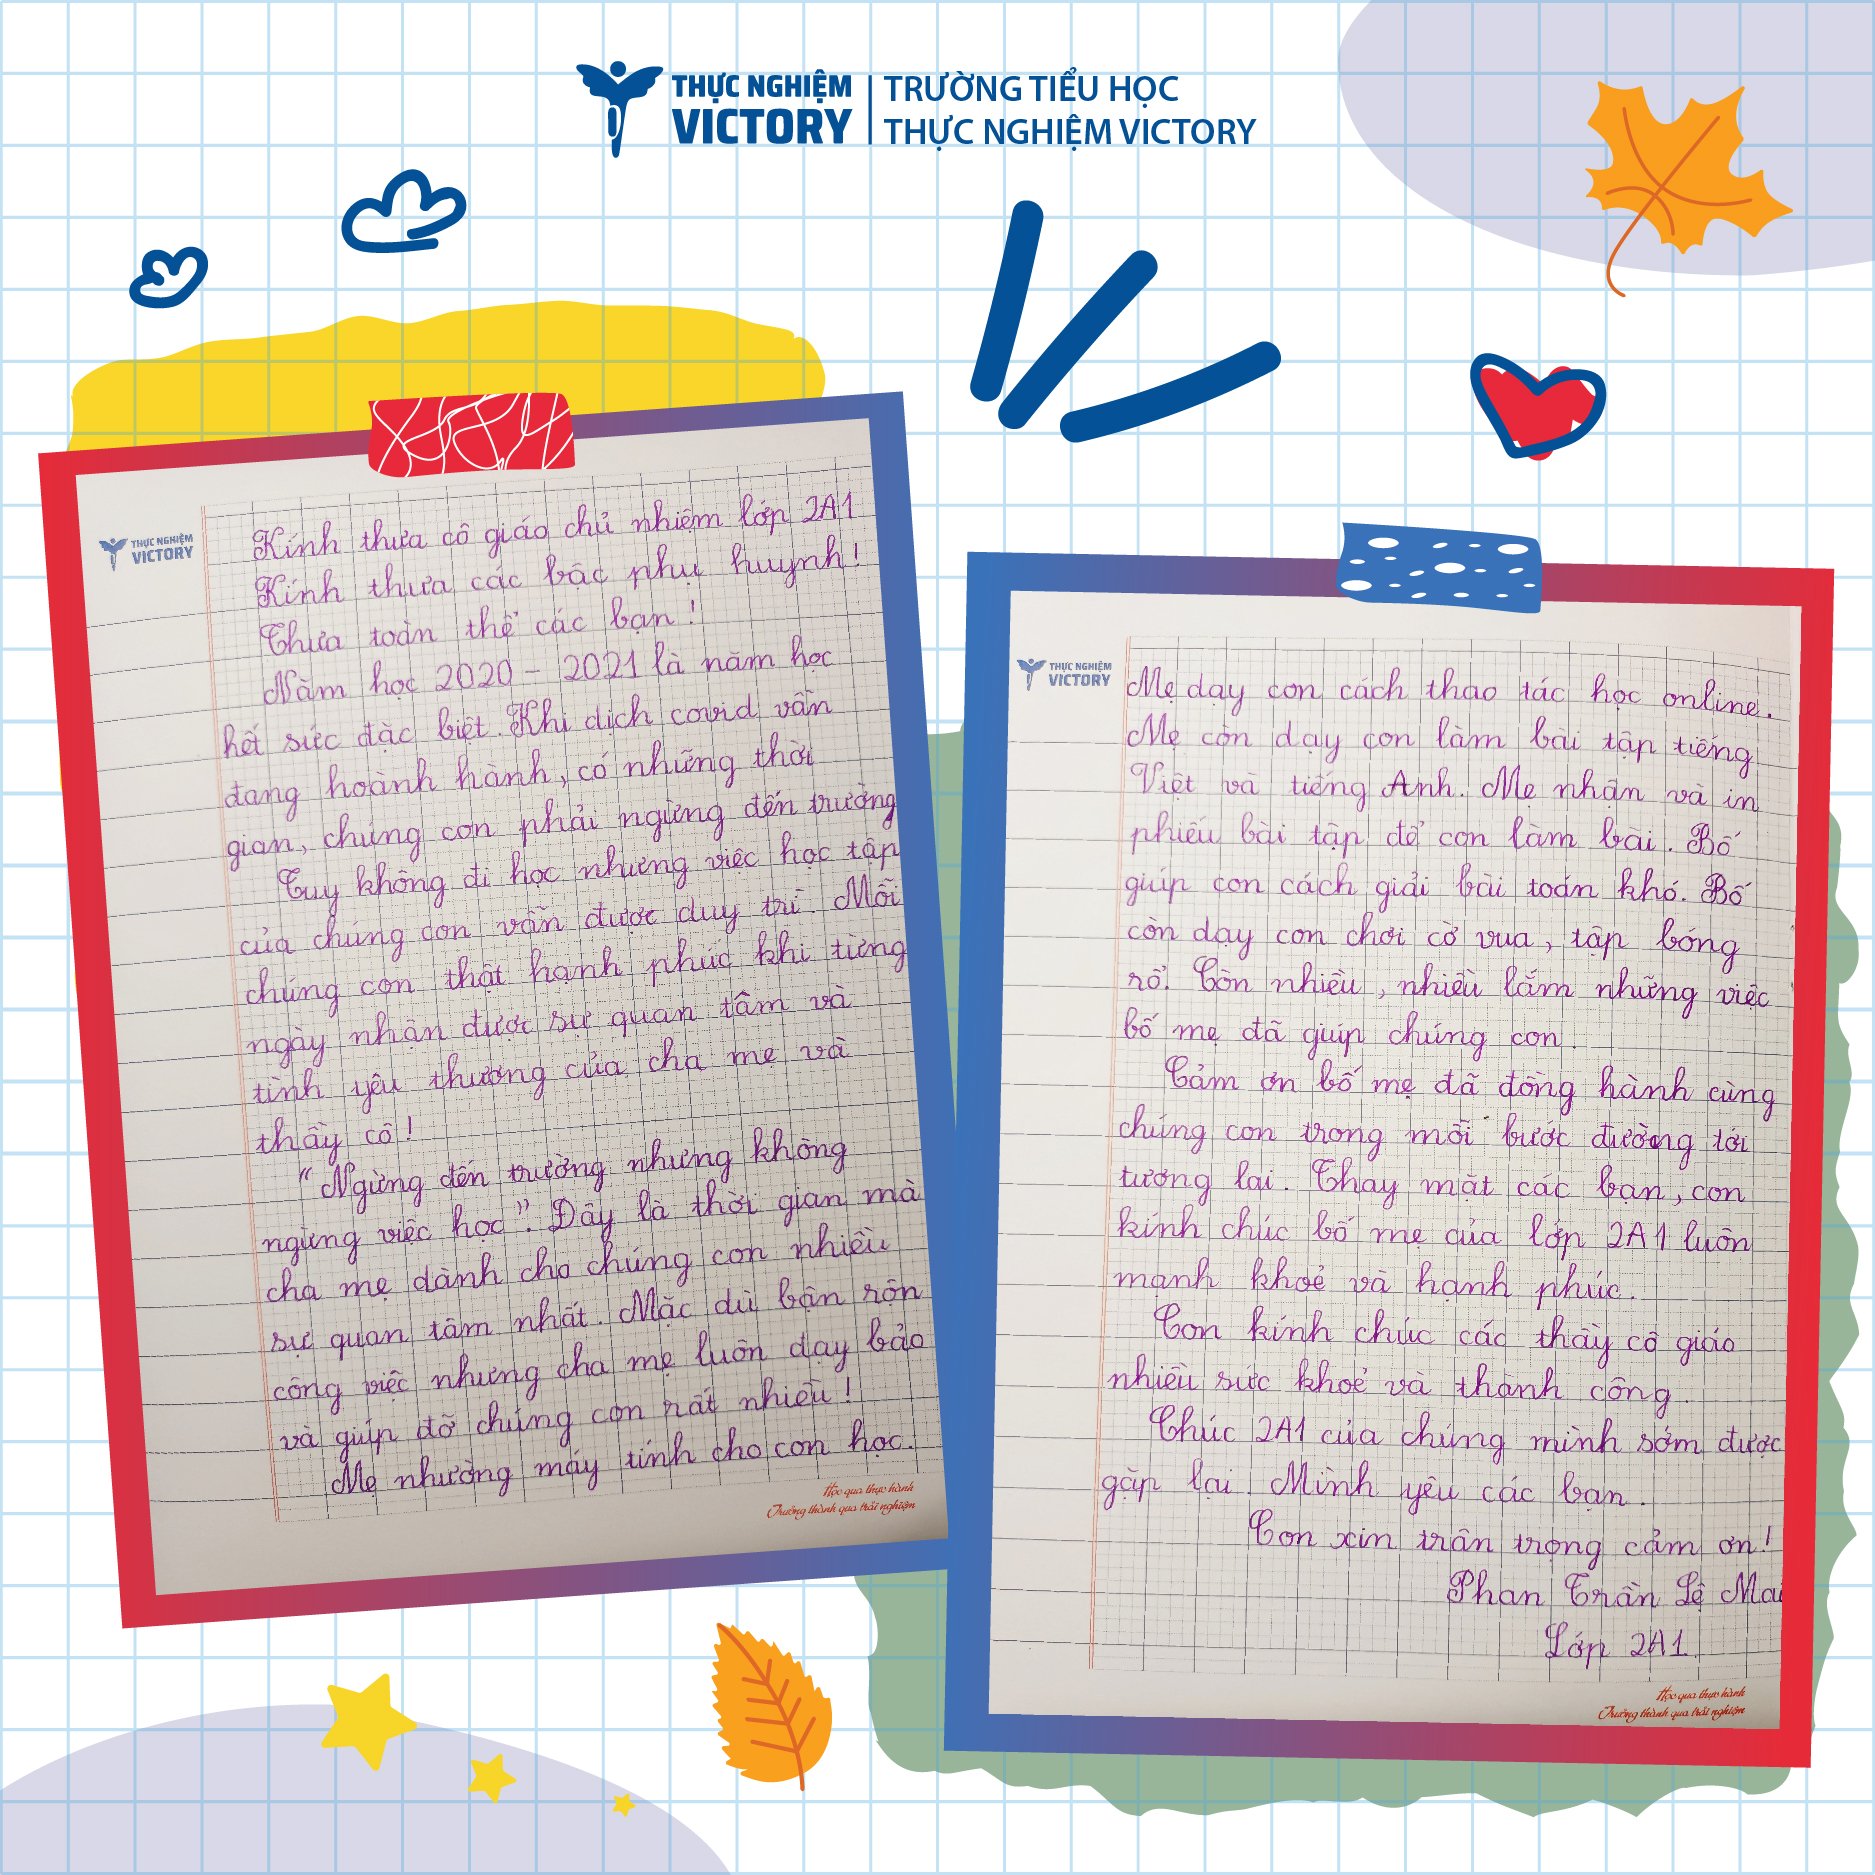 THỰC NGHIỆM
VICTORY
TRƯỜNG TIỂU HỌC
THỰC NGHIỆM VICTORY
THỰC NGHIỆM
VICTORY
Kính thưa cô giáo chủ nhiệm lớp 2A1
Kính thưa các bậc phụ huynh!
Thưa toàn thể các bạn!
Năm học 2020 - 2021 là năm học
hết sức đặc biệt. Khi dịch covid vẫn
đang hoành hành, có những thời
gian, chúng con phải ngừng đến trường
Tuy không đi học nhưng việc học tập
của chúng con vẫn được duy trì. Mỗi
chúng con thật hạnh phúc khi từng
ngày nhận được sự quan tâm và
tình yêu thương của cha mẹ và
thầy cô!
“Ngừng đến trường nhưng không
ngừng việc học”. Đây là thời gian mà
cha mẹ dành cho chúng con nhiều
sự quan tâm nhất. Mặc dù bận rộn
công việc nhưng cha mẹ luôn dạy bảo
và giúp đỡ chúng con rất nhiều!
Mẹ nhường máy tính cho con học.
Học qua thực hành
Trưởng thành qua trải nghiệm
THỰC NGHIỆM
VICTORY
Mẹ dạy con cách thao tác học online.
Mẹ còn dạy con làm bài tập tiếng
Việt và tiếng Anh. Mẹ nhận và in
phiếu bài tập để con làm bài. Bố
giúp con cách giải bài toán khó. Bố
còn dạy con chơi cờ vua, tập bóng
rổ. Còn nhiều, nhiều lắm những việc
bố mẹ đã giúp chúng con.
Cảm ơn bố mẹ đã đồng hành cùng
chúng con trong mỗi bước đường tới
tương lai. Thay mặt các bạn, con
kính chúc bố mẹ của lớp 2A1 luôn
mạnh khoẻ và hạnh phúc.
Con kính chúc các thầy cô giáo
nhiều sức khoẻ và thành công.
Chúc 2A1 của chúng mình sớm được
gặp lại. Mình yêu các bạn.
Con xin trân trọng cảm ơn!
Phan Trần Lệ Mai
Lớp 2A1.
Học qua thực hành
Trưởng thành qua trải nghiệm